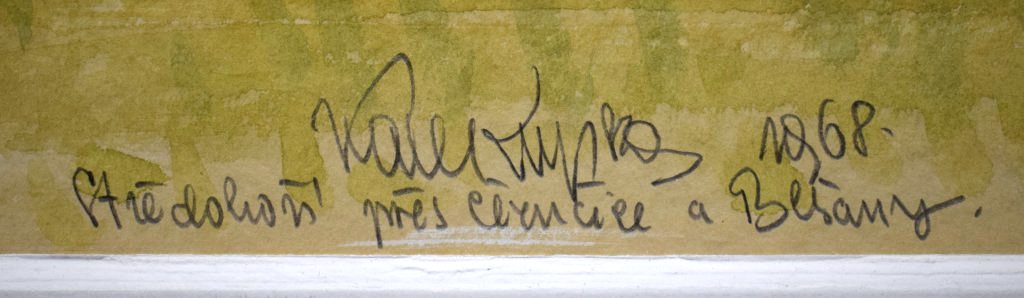 Karel Kupka 1968.
Středohoří přes Černčice a Blšany.